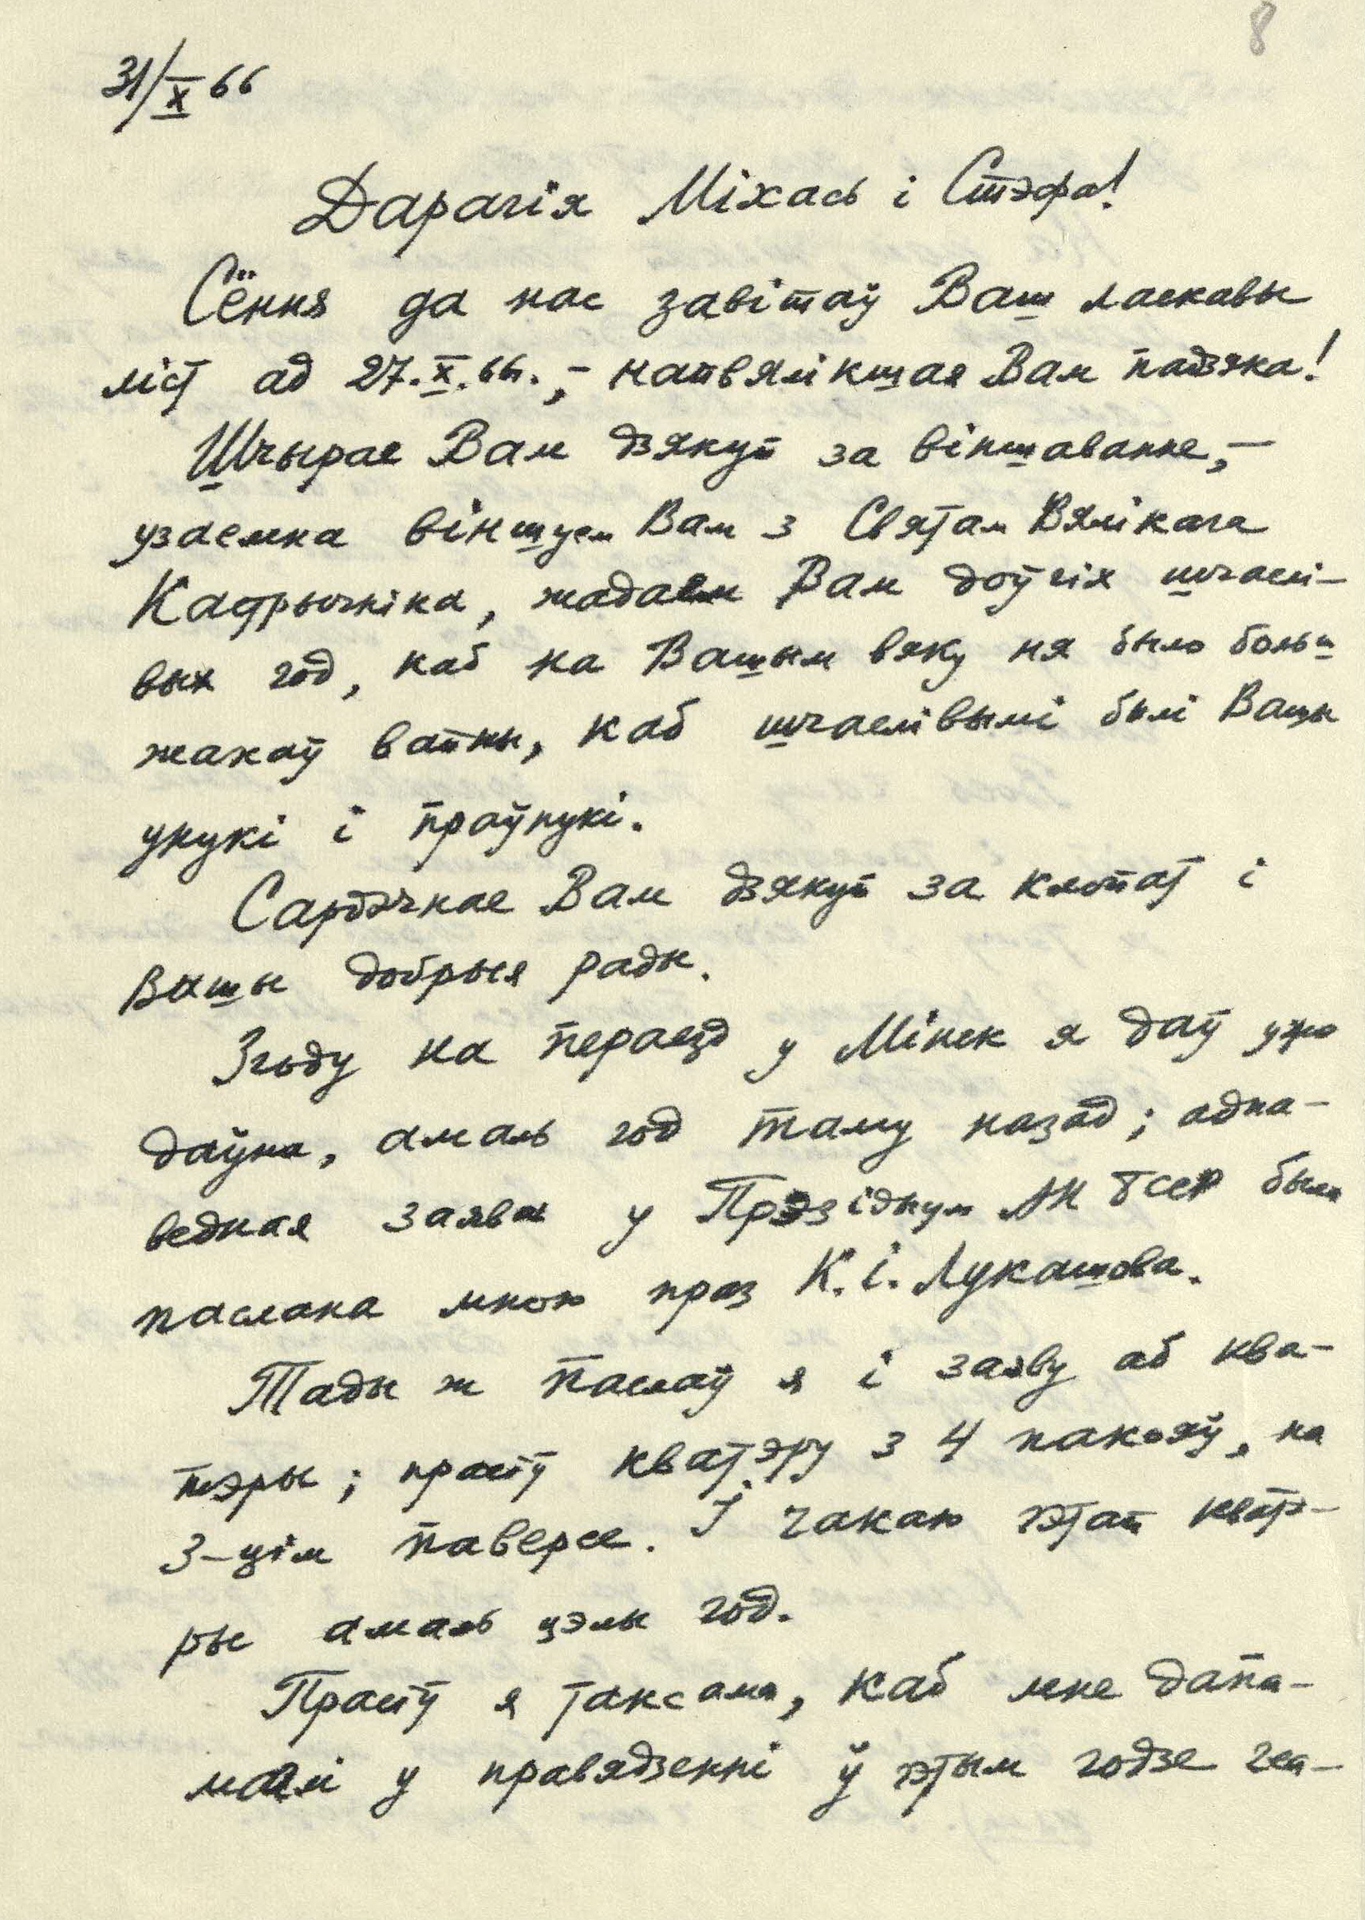 8
31/X 66
Дарагія Міхась і Стэфа!
Сёння да нас завітаў Ваш ласкавы
ліст ад 27.X.66., – найвялікшая Вам падзяка!
Шчырае Вам дзякуй за віншаванне, –
узаемна віншуем Вам з Святам Вялікага
Кастрычніка, жадаем Вам доўгіх шчаслі-
вых год, каб на Вашым вяку ня было больш
жахаў вайны, каб шчаслівымі былі Вашы
унукі і праўнукі.
Сардэчнае Вам дзякуй за клопат і
Вашы добрыя рады.
Згоду на пераезд у Мінск я даў ужо
даўно, амаль год таму назад; адпа-
ведная заява у Прэзідыум АН БССР была
паслана мною праз К. І. Лукашова.
Тады ж паслаў я і заяву аб ква-
тэры; прасіў кватэру з 4 пакояў, на
3-цім паверсе. І чакаю гэтай кватэ-
ры амаль цэлы год.
Прасіў я таксама, каб мне дапа-
маглі у правядзенні ў гэтым годзе геа-